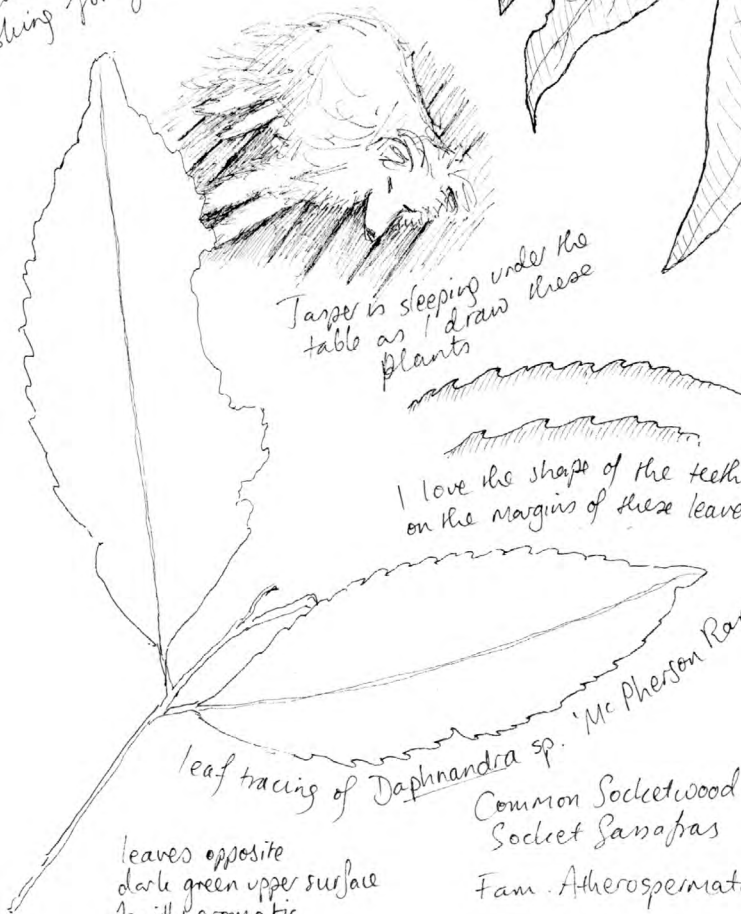 Jasper is sleeping under the
table as I draw these
plants
I love the shape of the teeth
on the margins of these leave
leaf tracing of Daphnandra sp. 'McPherson Ra
Common Socketwood
Socket Sassafras
Fam. Atherospermat
leaves opposite
dark green upper surface